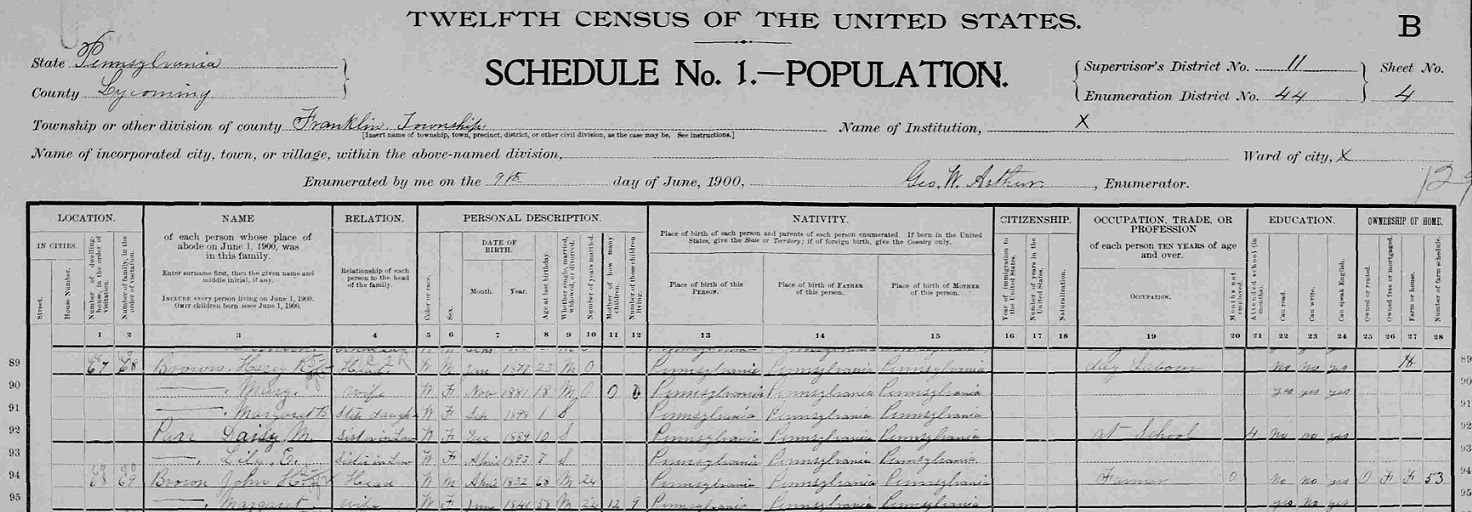 TWELFTH CENSUS OF THE UNITED STATES.
B
State Pennsylvania
County Lycoming
SCHEDULE No. 1.—POPULATION.
Supervisor's District No. 11
Enumeration District No. 44
Sheet No.
4
Township or other division of county Franklin Township
[Insert name of township, town, precinct, district, or other civil division, as the case may be. See instructions.]
Name of Institution, X
Name of incorporated city, town, or village, within the above-named division,
Ward of city, X
Enumerated by me on the 9th day of June, 1900, Geo. W. Arthur, Enumerator.
129
LOCATION.
IN CITIES.
Street.
House Number.
Number of dwelling-house, in the order of visitation.
Number of family, in the order of visitation.
NAME
of each person whose place of abode on June 1, 1900, was in this family.
Enter surname first, then the given name and middle initial, if any.
INCLUDE every person living on June 1, 1900.
OMIT children born since June 1, 1900.
RELATION.
Relationship of each person to the head of the family.
PERSONAL DESCRIPTION.
Color or race.
Sex.
DATE OF BIRTH.
Month. Year.
Age at last birthday.
Whether single, married, widowed, or divorced.
Number of years married.
Mother of how many children.
Number of these children living.
NATIVITY.
Place of birth of each person and parents of each person enumerated. If born in the United States, give the State or Territory; if of foreign birth, give the Country only.
Place of birth of this PERSON.
Place of birth of FATHER of this person.
Place of birth of MOTHER of this person.
CITIZENSHIP.
Year of immigration to the United States.
Number of years in the United States.
Naturalization.
OCCUPATION, TRADE, OR PROFESSION
of each person TEN YEARS of age and over.
OCCUPATION.
Months not employed.
EDUCATION.
Attended school (in months).
Can read.
Can write.
Can speak English.
OWNERSHIP OF HOME.
Owned or rented.
Owned free or mortgaged.
Farm or house.
Number of farm schedule.
1 2 3 4 5 6 7 8 9 10 11 12 13 14 15 16 17 18 19 20 21 22 23 24 25 26 27 28
89 67 68 Brown Harry Head W M Jan 1877 23 M 0 Pennsylvania Pennsylvania Pennsylvania Day Laborer No No yes H 89
90 Mary wife W F Nov 1881 18 M 0 0 0 Pennsylvania Pennsylvania Pennsylvania yes yes yes 90
91 Margaret Step daughter W F 1898 1 S Pennsylvania Pennsylvania Pennsylvania 91
92 Daisy M. Sister in Law W F Dec 1889 10 S Pennsylvania Pennsylvania Pennsylvania at School 4 No no yes 92
93 Lily E. Sister in Law W F April 1893 7 S Pennsylvania Pennsylvania Pennsylvania 93
94 68 69 Brown John Head W M April 1832 68 M 22 Pennsylvania Pennsylvania Pennsylvania Farmer 0 No No yes O F F 53 94
95 Margaret wife W F June 1841 58 M 22 12 9 Pennsylvania Pennsylvania Pennsylvania yes No yes 95